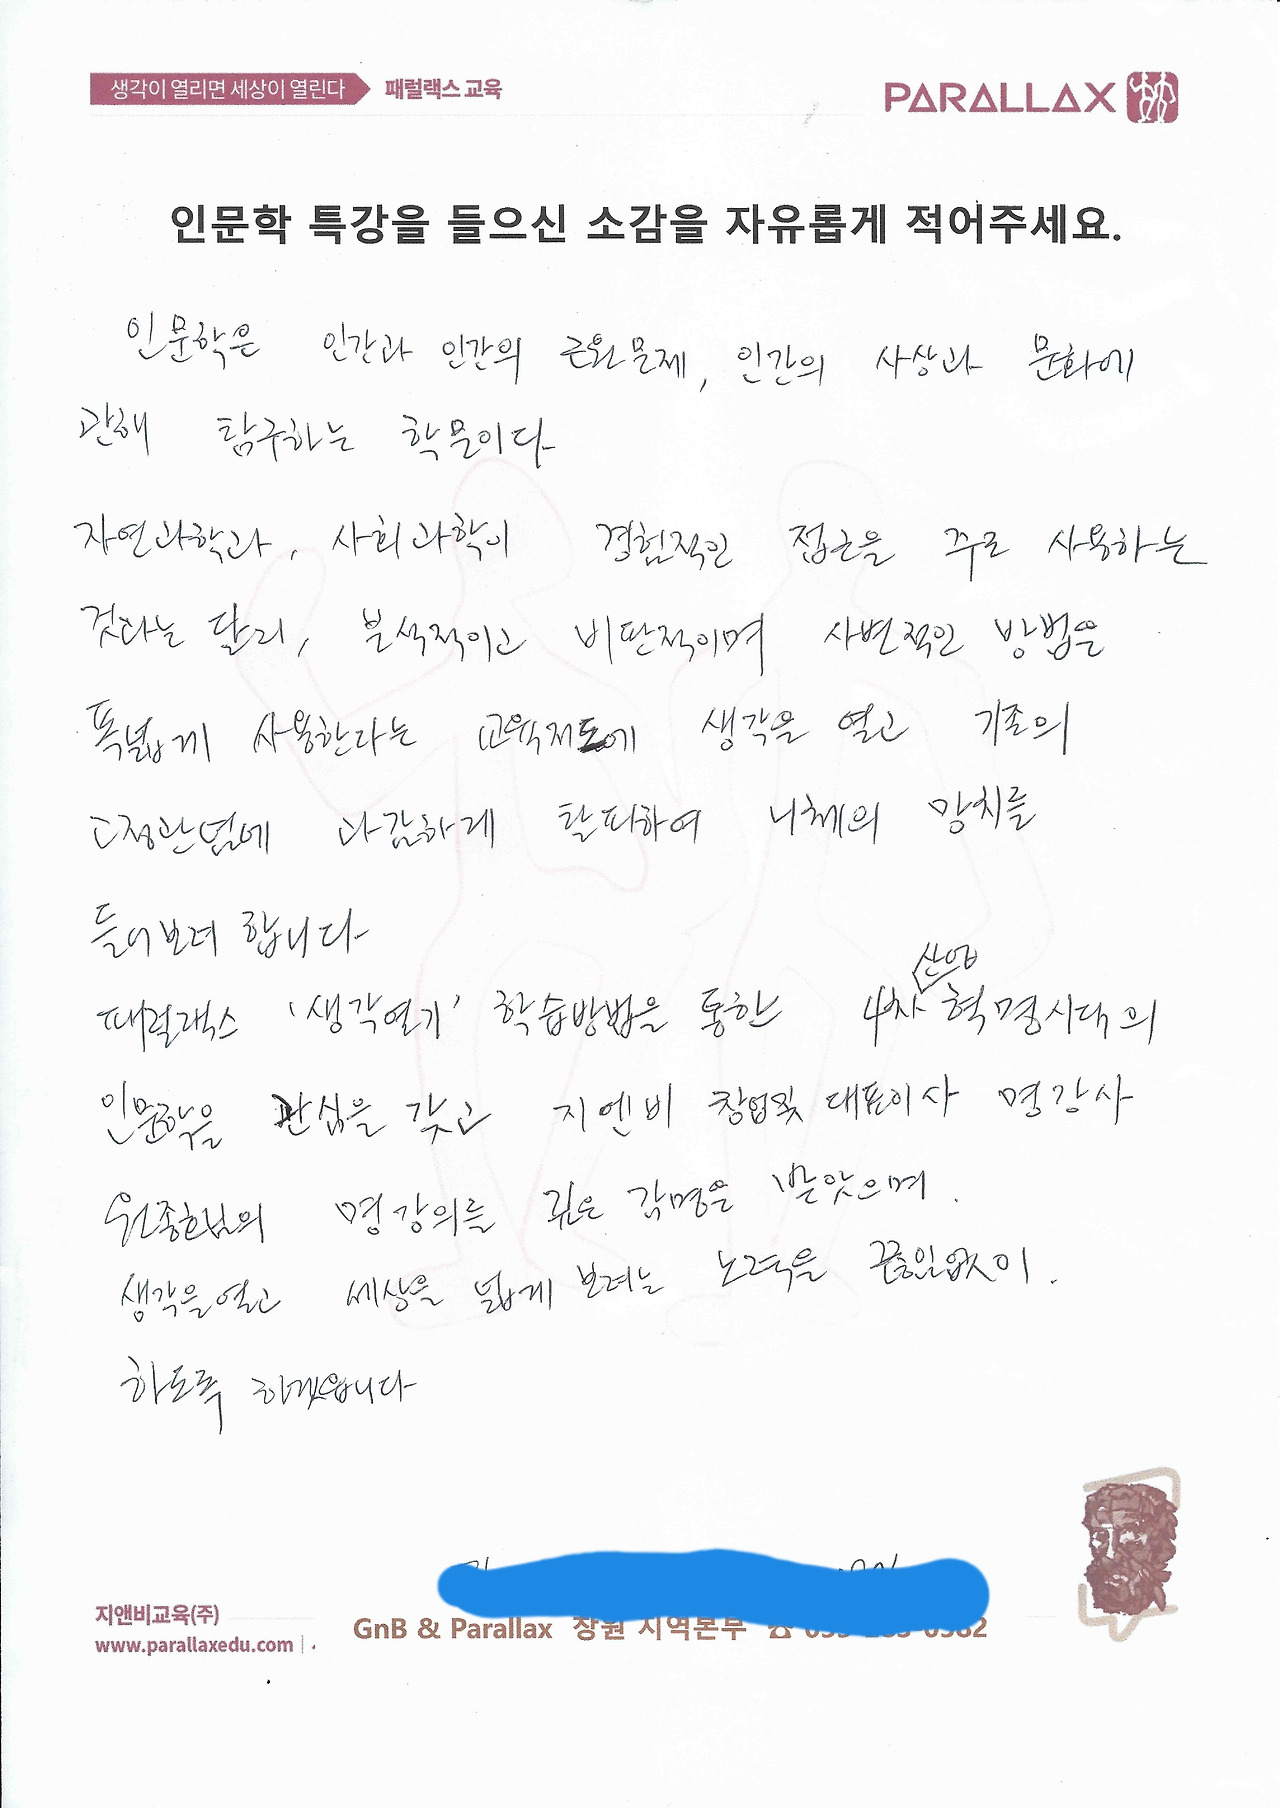 생각이 열리면 세상이 열린다 패럴랙스 교육
PARALLAX
인문학 특강을 들으신 소감을 자유롭게 적어주세요.
인문학은 인간과 인간의 근원문제, 인간의 사상과 문화에
관해 탐구하는 학문이다
자연과학과, 사회과학이 경험적인 접근을 주로 사용하는
것과는 달리, 분석적이고 비판적이며 사변적인 방법을
폭넓게 사용한다는 교육제도에 생각을 열고 기존의
고정관념에 과감하게 탈피하여 니체의 망치를
들어보려 합니다
패럴랙스 '생각열기' 학습방법을 통한 4차 산업 혁명시대의
인문학을 관심을 갖고 지엔비 창업및 대표이사 명강사
원종호님의 명강의를 깊은 감명을 받았으며.
생각을열고 세상을 넓게 보려는 노력을 끊임없이.
하도록 하겠읍니다
지앤비교육(주)
www.parallaxedu.com
GnB & Parallax 창원 지역본부